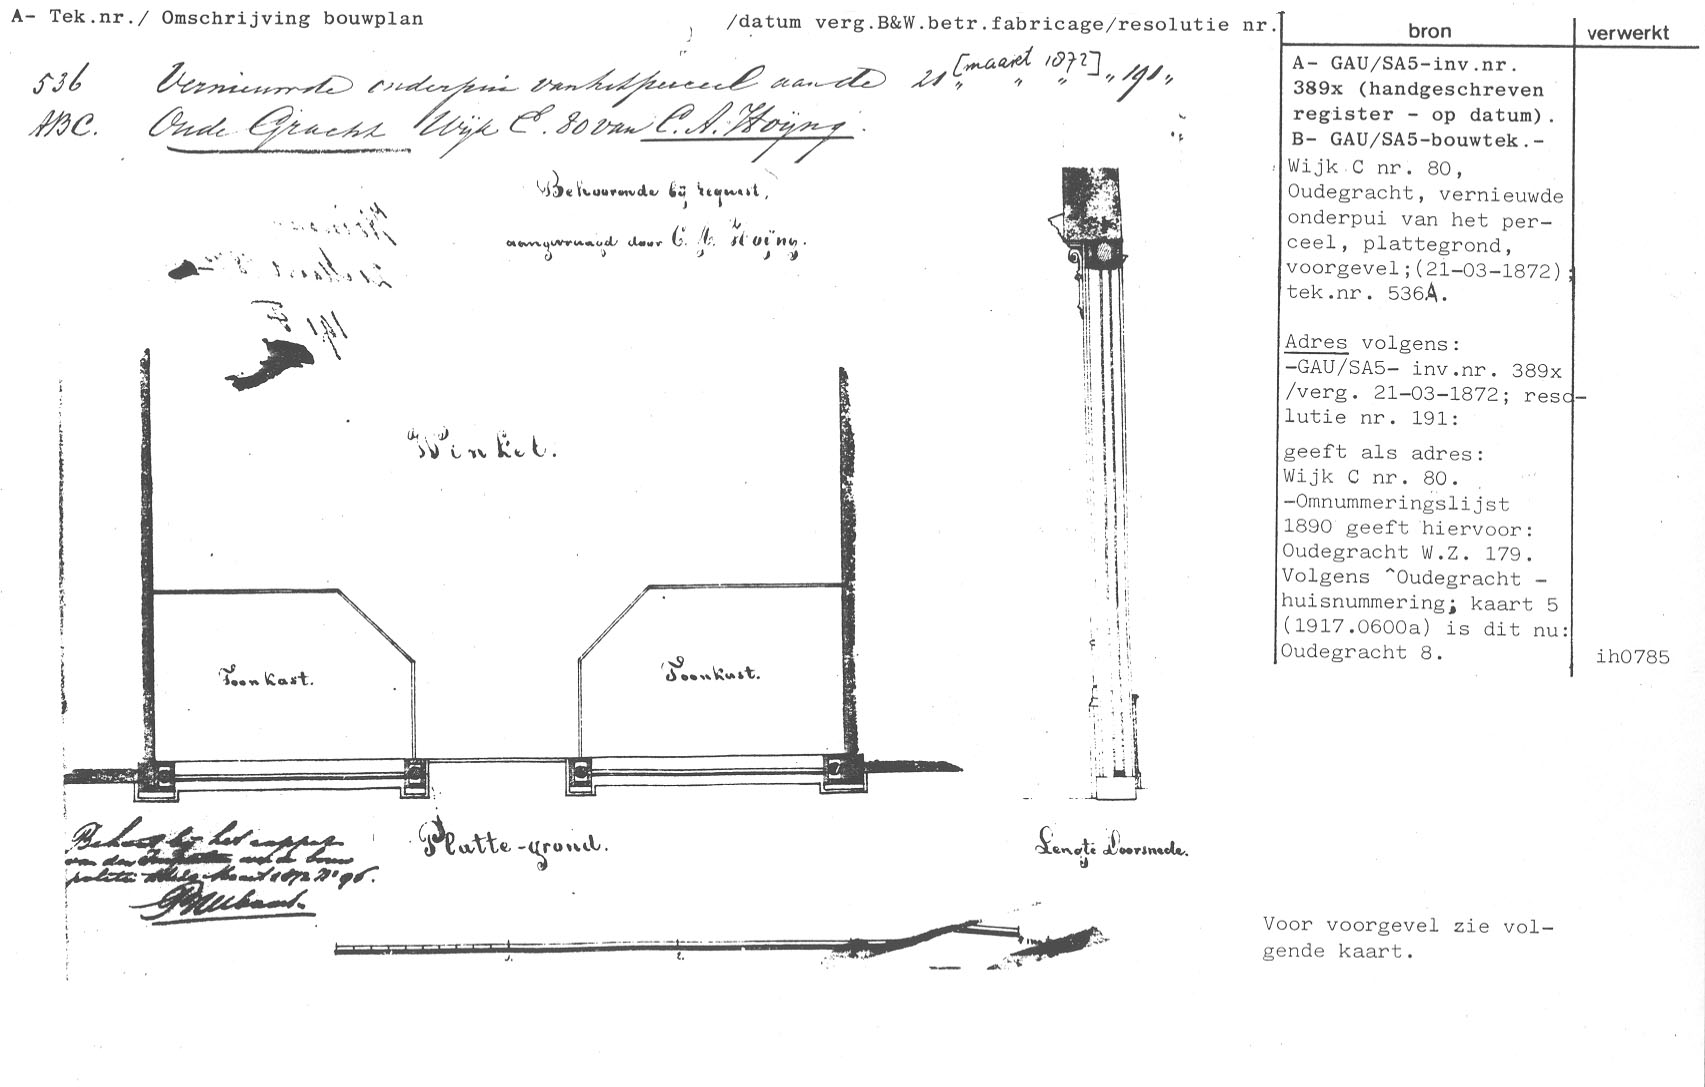 A- Tek.nr./ Omschrijving bouwplan /datum verg.B&W.betr.fabricage/resolutie nr.
536 Vernieuwde onderpui van het perceel aan de 21 " [maart 1872] " " " 191 "
ABC. Oude Gracht Wijk C. 80 van C. A. Hoÿng.
Behoorende bij request,
aangevraagd door C. A. Hoÿng.
191
Winkel.
Toonkast.
Toonkast.
Platte-grond.
Lengte Doorsnede.
Behoort bij het rapport
van den
politie Maart 1872 No 96.
1.
2.
bron
verwerkt
A- GAU/SA5-inv.nr.
389x (handgeschreven
register - op datum).
B- GAU/SA5-bouwtek.-
Wijk C nr. 80,
Oudegracht, vernieuwde
onderpui van het per-
ceel, plattegrond,
voorgevel;(21-03-1872);
tek.nr. 536A.
Adres volgens:
-GAU/SA5- inv.nr. 389x
/verg. 21-03-1872; reso-
lutie nr. 191:
geeft als adres:
Wijk C nr. 80.
-Omnummeringslijst
1890 geeft hiervoor:
Oudegracht W.Z. 179.
Volgens ^Oudegracht -
huisnummering; kaart 5
(1917.0600a) is dit nu:
Oudegracht 8.
ih0785
Voor voorgevel zie vol-
gende kaart.